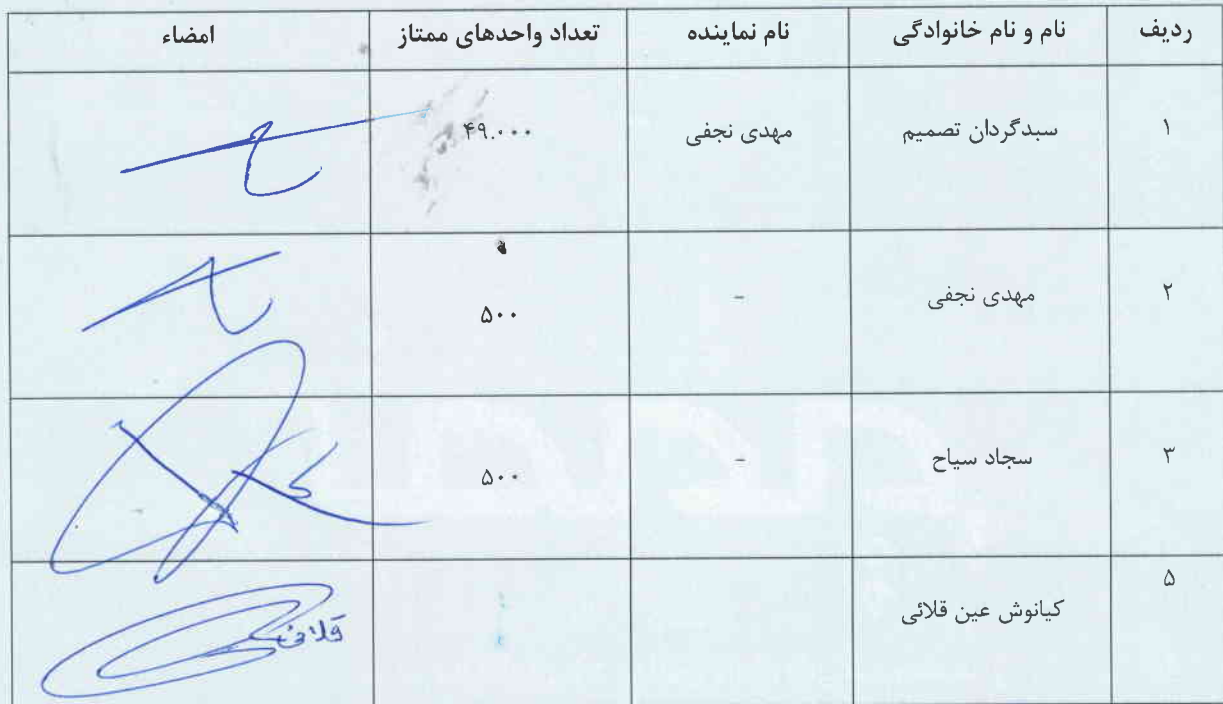 ردیف نام و نام خانوادگی نام نماینده تعداد واحدهای ممتاز امضاء
۱ سبدگردان تصمیم مهدی نجفی ۴۹.۰۰۰
۲ مهدی نجفی - ۵۰۰
۳ سجاد سیاح - ۵۰۰
۵ کیانوش عین قلائی قلائی